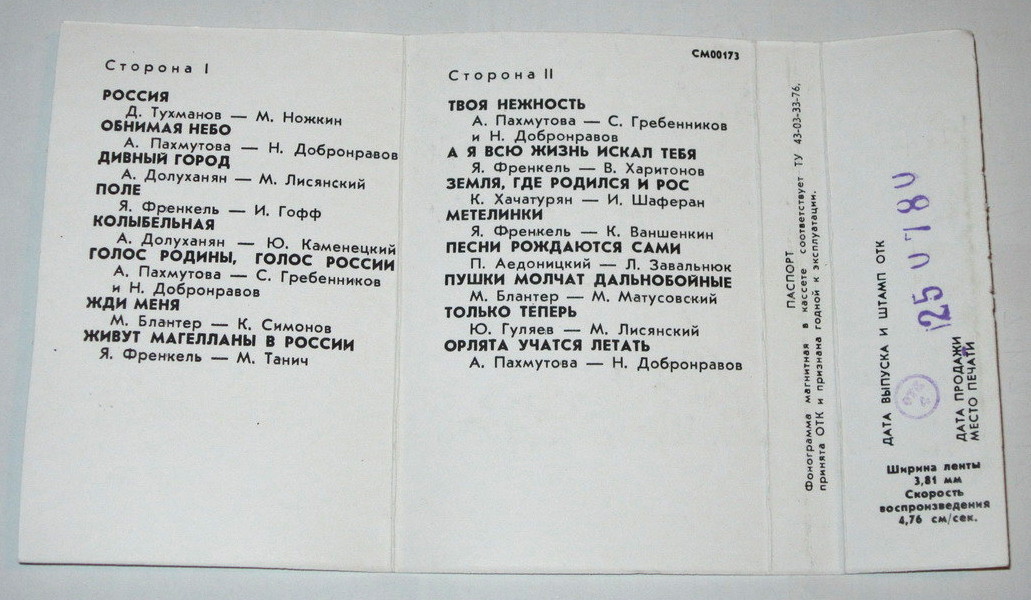 Сторона I
РОССИЯ
Д. Тухманов — М. Ножкин
ОБНИМАЯ НЕБО
А. Пахмутова — Н. Добронравов
ДИВНЫЙ ГОРОД
А. Долуханян — М. Лисянский
ПОЛЕ
Я. Френкель — И. Гофф
КОЛЫБЕЛЬНАЯ
А. Долуханян — Ю. Каменецкий
ГОЛОС РОДИНЫ, ГОЛОС РОССИИ
А. Пахмутова — С. Гребенников
и Н. Добронравов
ЖДИ МЕНЯ
М. Блантер — К. Симонов
ЖИВУТ МАГЕЛЛАНЫ В РОССИИ
Я. Френкель — М. Танич
СМ00173
Сторона II
ТВОЯ НЕЖНОСТЬ
А. Пахмутова — С. Гребенников
и Н. Добронравов
А Я ВСЮ ЖИЗНЬ ИСКАЛ ТЕБЯ
Я. Френкель — В. Харитонов
ЗЕМЛЯ, ГДЕ РОДИЛСЯ И РОС
К. Хачатурян — И. Шаферан
МЕТЕЛИНКИ
Я. Френкель — К. Ваншенкин
ПЕСНИ РОЖДАЮТСЯ САМИ
П. Аедоницкий — Л. Завальнюк
ПУШКИ МОЛЧАТ ДАЛЬНОБОЙНЫЕ
М. Блантер — М. Матусовский
ТОЛЬКО ТЕПЕРЬ
Ю. Гуляев — М. Лисянский
ОРЛЯТА УЧАТСЯ ЛЕТАТЬ
А. Пахмутова — Н. Добронравов
ПАСПОРТ
Фонограмма магнитная в кассете соответствует ТУ 43-03-33-76,
принята ОТК и признана годной к эксплуатации.
ДАТА ВЫПУСКА И ШТАМП ОТК
ДАТА ПРОДАЖИ
МЕСТО ПЕЧАТИ
Ширина ленты
3,81 мм
Скорость
воспроизведения
4,76 см/сек.